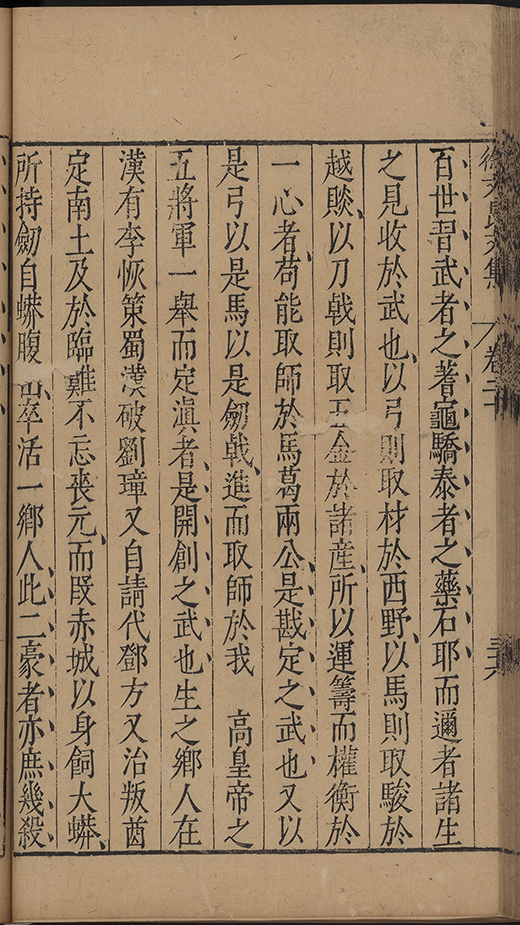 百世習武者之蓍龜驕泰者之藥石耶而邇者諸生
之見收於武也以弓則取材於西野以馬則取駿於
越賧以刀戟則取五金於諸産所以運籌而權衡於
一心者苟能取師於馬葛兩公是戡定之武也又以
是弓以是馬以是劒戟進而取師於我　高皇帝之
五將軍一舉而定滇者是開創之武也生之鄉人在
漢有李恢策蜀漢破劉璋又自請代鄧方又治叛酋
定南土及於臨難不忘喪元而段赤城以身飼大蟒
所持劒自蟒腹出卒活一鄉人此二豪者亦庶幾殺
卷二十
三六